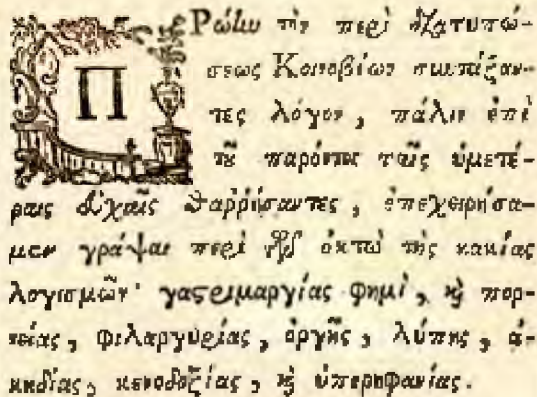 Πρώτω τὴν περὶ διατυπώ-
σεως Κοινοβίων συντάξαν-
τες λόγον, πάλιν ἐπὶ
τῦ παρόντος ταῖς ὑμετέ-
ραις εὐχαῖς θαρρήσαντες, ἐπεχειρήσα-
μεν γράψαι περὶ τῶν ὀκτὼ τῆς κακίας
λογισμῶν· γαστριμαργίας φημὶ, καὶ πορ-
νείας, φιλαργυρίας, ὀργῆς, λύπης, ἀ-
κηδίας, κενοδοξίας, καὶ ὑπερηφανίας.